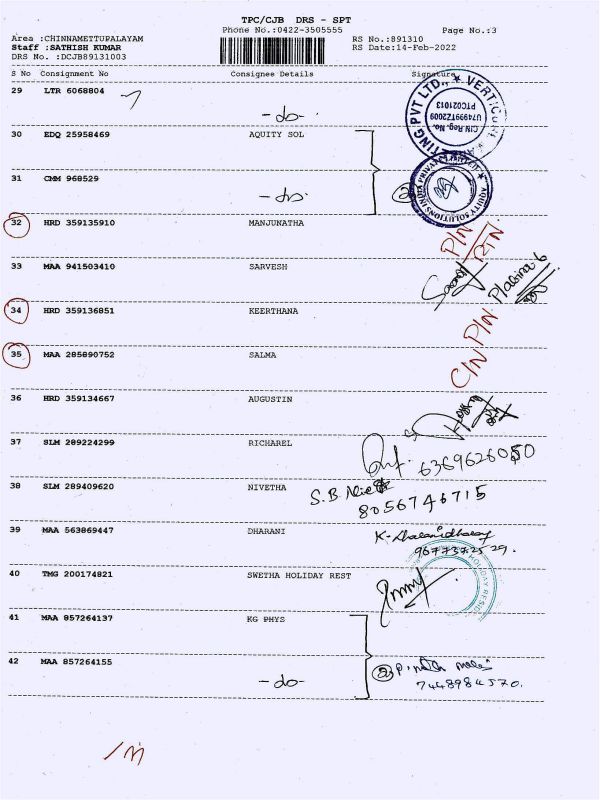 TPC/CJB DRS - SPT
Phone No.:0422-3505555 Page No.:3
Area :CHINNAMETTUPALAYAM RS No.:891310
Staff :SATHISH KUMAR RS Date:14-Feb-2022
DRS No. :DCJB89131003
S No Consignment No Consignee Details Signature
29 LTR 6068804
-do-
30 EDQ 25958469 AQUITY SOL
31 CMM 968529
-do-
32 HRD 359135910 MANJUNATHA
PIN
RTN
33 MAA 941503410 SARVESH
34 HRD 359136851 KEERTHANA
PIN
35 MAA 285890752 SALMA
CIN
36 HRD 359134667 AUGUSTIN
37 SLM 289224299 RICHAREL
6369626050
38 SLM 289409620 NIVETHA S.B.
8056746715
39 MAA 563869447 DHARANI
40 TMG 200174821 SWETHA HOLIDAY REST
41 MAA 857264137 KG PHYS
42 MAA 857264155
-do-
2
7448984570.